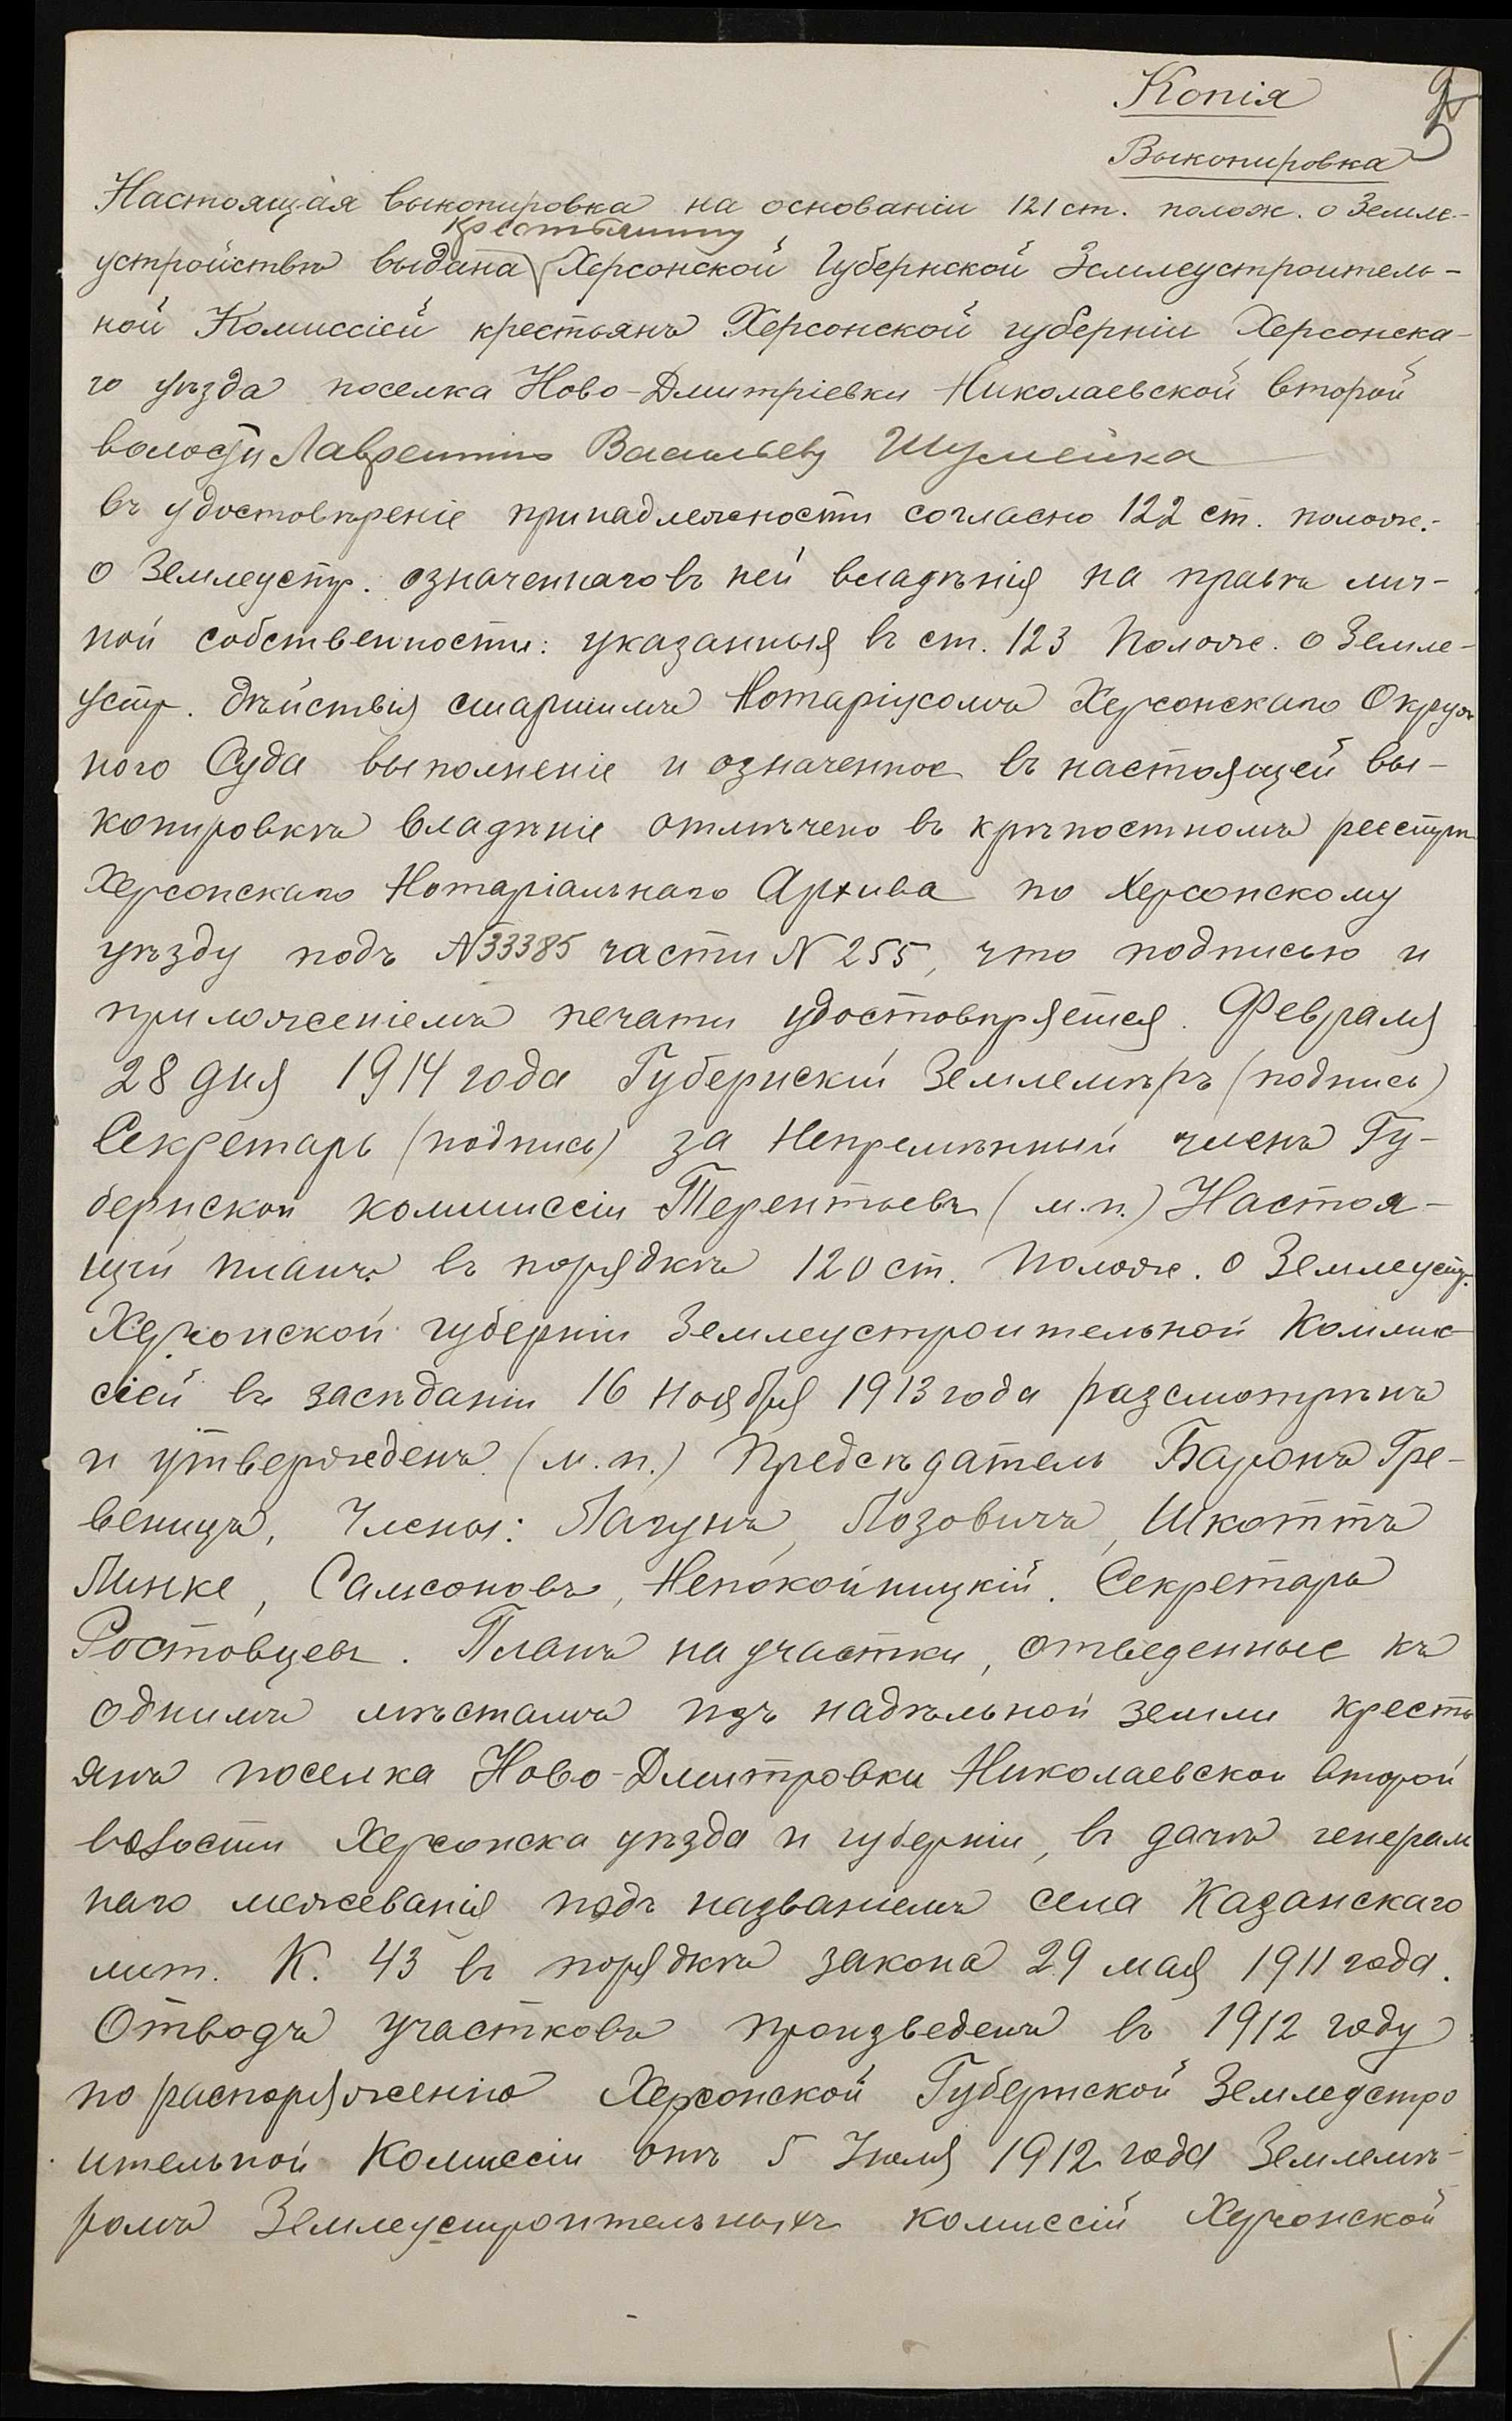 Копія
5
Выкопировка
Настоящая выкопировка на основаніи 121 ст. полож. о Земле-
Крестьянину
устройствѣ выдана Херсонской Губернской Землеустроитель-
ной Комиссіей крестьянъ Херсонской губерніи Херсонска-
го уѣзда поселка Ново-Дмитріевки Николаевской второй
волости Лаврентію Васильеву Шумейка
въ удостовѣреніе принадлежности согласно 122 ст. полож.-
о Землеустр. означеннаго въ ней владѣнія на правѣ лич-
ной собственности: указанныя въ ст. 123 Полож. о Земле-
устр. дѣйствія старшимъ Нотаріусомъ Херсонскаго Окруж
ного Суда выполненіе и означенное въ настоящей вы-
копировкѣ владѣніе отмѣчено въ крѣпостномъ реестрѣ
Херсонскаго Нотаріальнаго Архива по Херсонскому
уѣзду подъ N 33385 части N 255, что подписью и
приложеніемъ печати удостовѣряется. Февраля
28 дня 1914 года Губернскій Землемѣръ (подпись)
Секретарь (подпись) за Непремѣнный членъ Гу-
бернской коммиссіи Терентьевъ (м.п.) Настоя-
щій планъ въ порядкѣ 120 ст. Полож. о Землеустр.
Херсонской губерніи Землеустроительной Коммис-
сіей въ засѣданіи 16 Ноября 1913 года разсмотрѣнъ
и утвержденъ (м.п.) Предсѣдатель Баронъ Гре-
веницъ, Члены: Лагунъ, Лозовичъ, Шкоттъ
Линке, Самсоновъ, Непокойницкій. Секретарь
Ростовцевъ. Планъ на участки, отведенные къ
однимъ мѣстамъ изъ надѣльной земли кресть
янъ поселка Ново-Дмитровки Николаевской второй
волости Херсонска уѣзда и губерніи, въ дачѣ генераль
наго межеванія подъ названіемъ села Казанскаго
лит. К. 43 въ порядкѣ закона 29 мая 1911 года.
Отводъ участковъ произведенъ въ 1912 году
по распоряженію Херсонской Губернской Землеустро
ительной Комиссіи отъ 5 Іюля 1912 года Землемѣ-
ромъ Землеустроительныхъ комиссій Херсонской